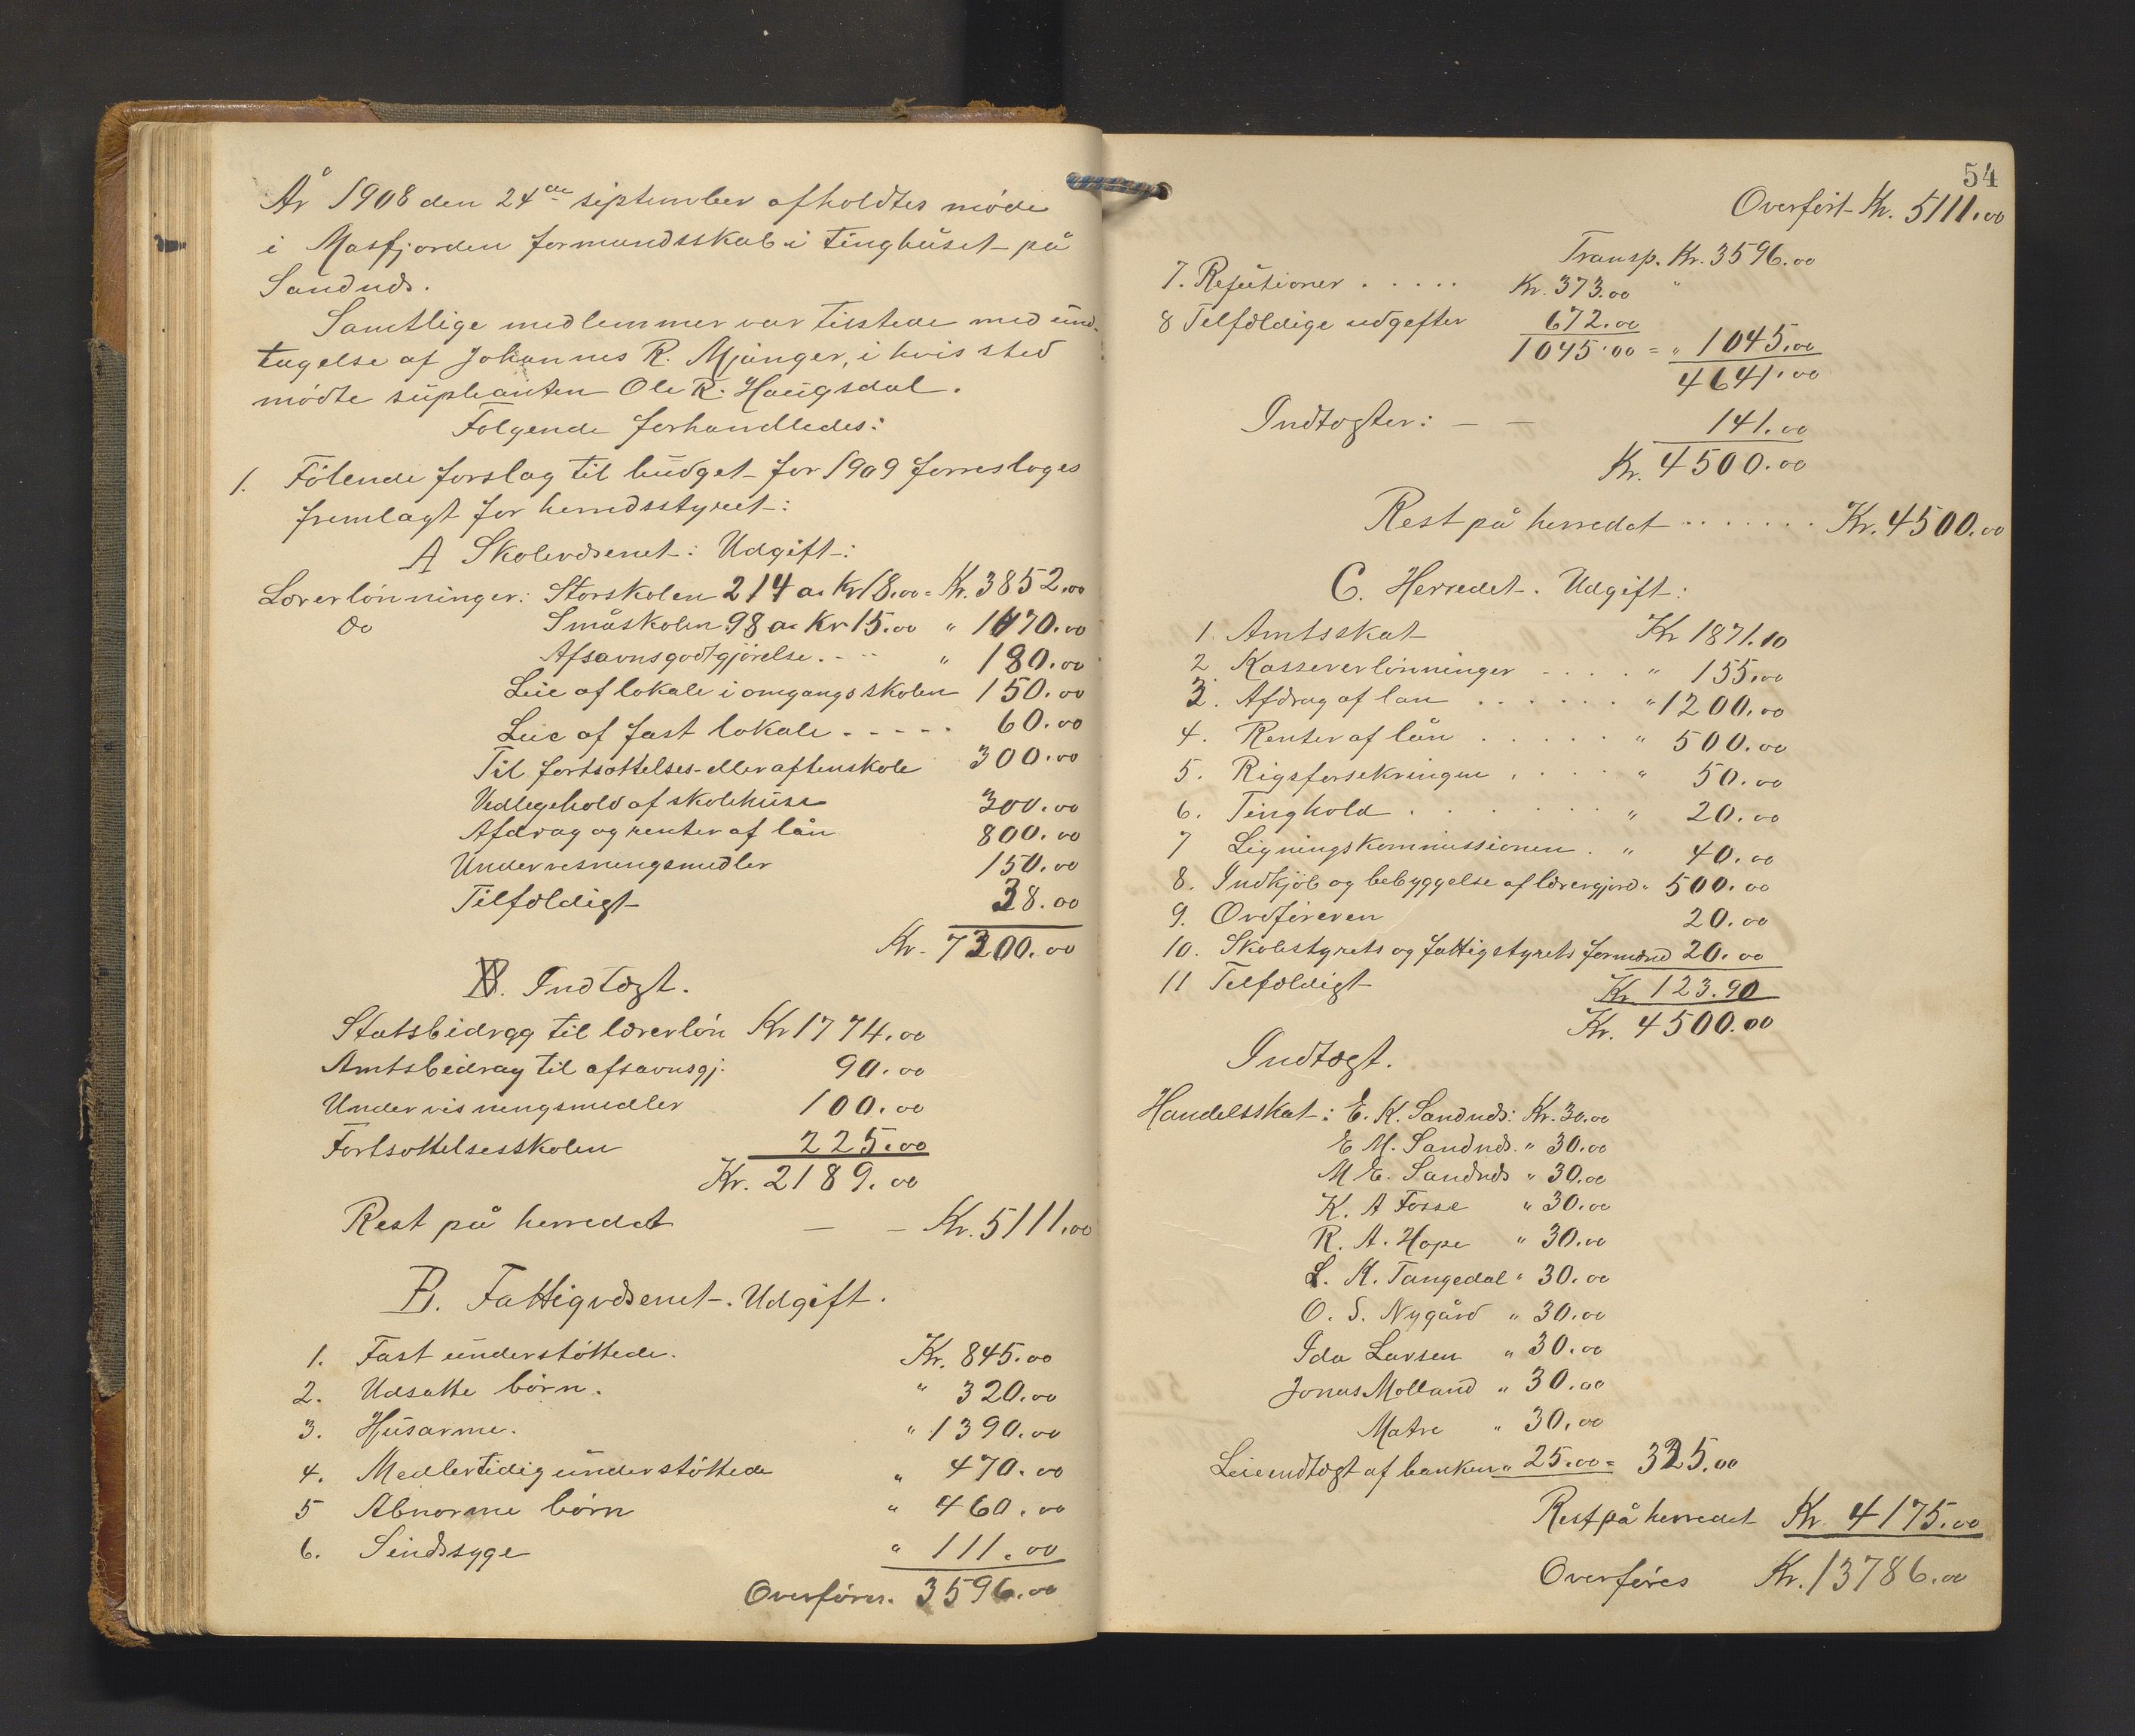 År 1908 den 24de september afholdtes møde
i Masfjorden formandsskab i tinghuset på
Sandnæs.
Samtlige medlemmer var tilstede med und-
tagelse af Johannes R. Mjanger, i hvis sted
mødte suplianten Ole R. Haugsdal.
Følgende forhandledes:
1. Følende forslag til budget for 1909 forresloges
fremlagt for herredsstyret:
A Skolevæsenet: Udgift:
Lærerlønninger: Storskolen 214 a Kr 18.00 = Kr. 3852.00
do Småskolen 98 a Kr 15.00 " 1470.00
Afsavnsgodtgjørelse. - - " 180.00
Leie af lokale i omgangsskolen 150.00
Leie af fast lokale - - - - - 60.00
Til fortsættelses- eller aftenskole 300.00
Vedlegehold af skolehuse 300.00
Afdrag og renter af lån 800.00
Undervisningsmedler 150.00
Tilfældigt 38.00
Kr. 7300.00
B. Indtægt.
Statsbidrag til lærerløn Kr 1774.00
Amtsbidrag til afsavnsgj. 90.00
Undervisningsmedler 100.00
Fortsættelsesskolen 225.00
Kr. 2189.00
Rest på herredet — - Kr. 5111.00
B. Fattigvæsenet. Udgift.
1. Fast understøttede. Kr. 845.00
2. Udsatte børn. " 320.00
3. Husarme. " 1390.00
4. Medlertidig understøttede " 470.00
5 Abnorme børn " 460.00
6. Sindssyge " 111.00
Overføres. 3596.00
54
Overført Kr. 5111.00
Transp. Kr. 3596.00
7. Refutioner . . . . . Kr. 373.00 "
8 Tilfældige udgefter 672.00
1045.00 = " 1045.00
4641.00
Indtægter: — — 141.00
Kr. 4500.00
Rest på herredet . . . . . . . Kr. 4500.00
C. Herredet. Udgift:
1. Amtsskat Kr 1871.10
2 Kassererlønninger - . . . " 155.00
3. Afdrag af lan . . . . . . " 1200.00
4. Renter af lån . . . . . " 500.00
5. Rigsforsekringen . . . . " 50.00
6. Tinghold . . . . . . . " 20.00
7 Ligningskommissionen . " 40.00
8. Indkjøb og bebyggelse af lærergjord " 500.00
9. Ordføreren 20.00
10. Skolestyrets og fattigstyrets formænd 20.00
11 Tilfældigt Kr 123.90
Kr. 4500.00
Indtægt.
Handelsskat: E. K. Sandnæs: Kr. 30.00
E M. Sandnæs. " 30.00
M E. Sandnæs " 30.00
K. A Fosse " 30.00
R. A. Hope " 30.00
L. K. Tangedal " 30.00
O. S. Nygård " 30.00
Ida Larsen " 30.00
Jonas Molland " 30.00
Matre " 30.00
Leieindtægt af banken " 25.00 = 325.00
Rest på herredet Kr. 4175.00
Overføres Kr. 13786.00